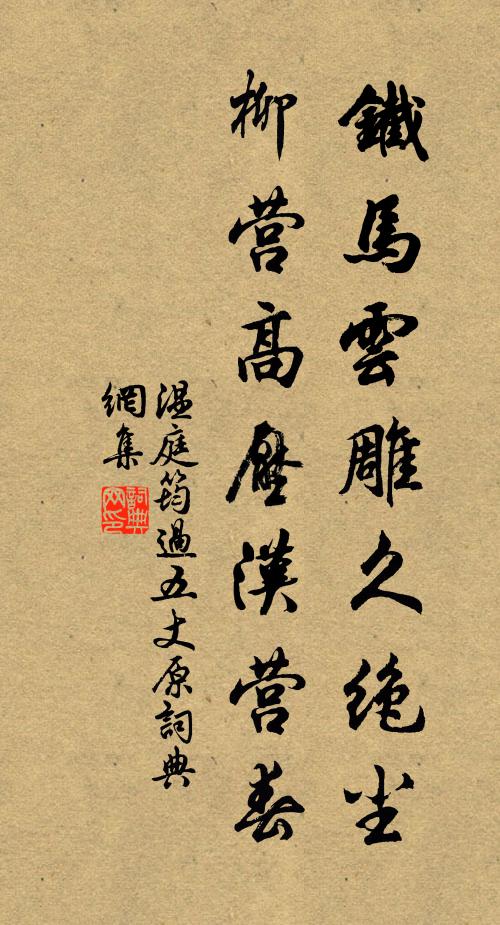 鐵馬雲雕久絶塵
柳营高壓漢营春
温庭筠過五丈原詞典
網集
詞典
网印